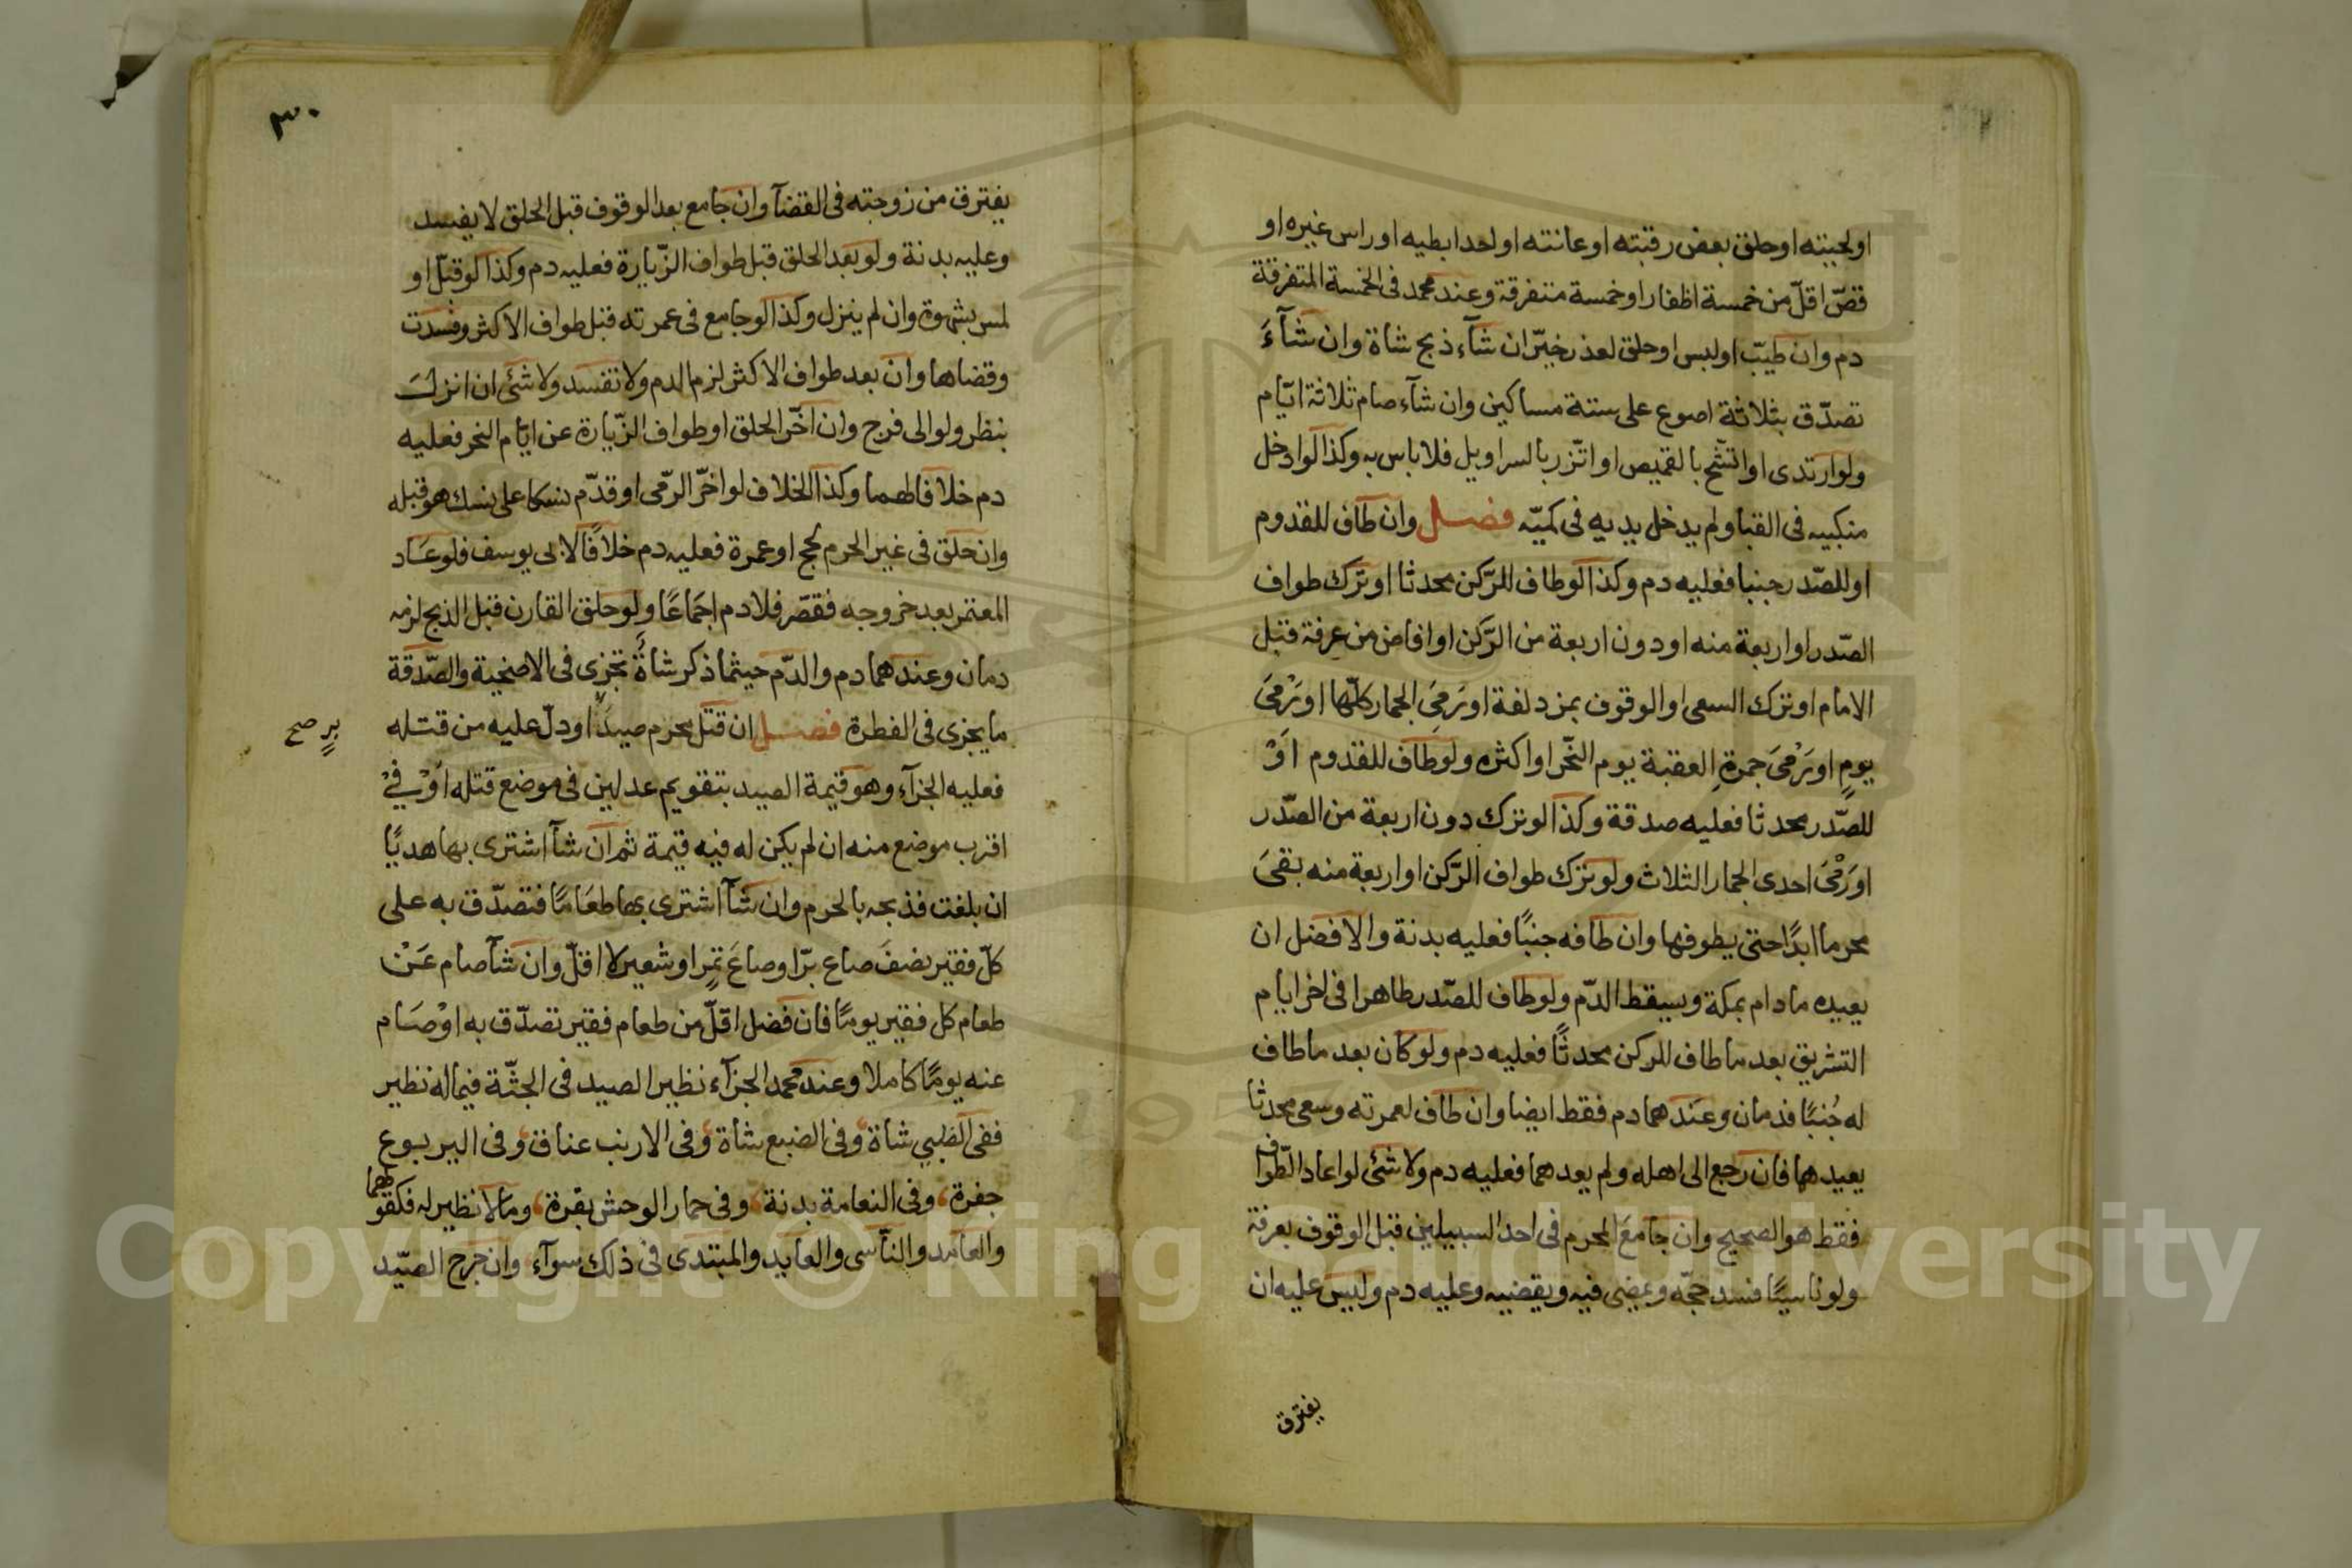 او لحيته او حلق بعض رقبته او عانته او احد ابطيه او راس غيره او
قصّ اقلّ من خمسة اظفار او خمسة متفرقة وعند محمد فى الخمسة المتفرقة
دم وان طيّب او لبس او حلق لعذر خيّر ان شآء ذبح شاة وان شآءَ
تصدّق بثلاثة اصوع على ستة مساكين وان شآء صام ثلاثة ايّام
ولو ارتدى او اتشّح بالقميص او اتّزر بالسراويل فلا باس به وكذا لو ادخل
منكبيه فى القبا ولم يدخل يديه فى كميّه فصل وان طاف للقدوم
او للصّدر جنبا فعليه دم وكذا لو طاف للرّكن محدثا او ترك طواف
الصّدر او اربعة منه او دون اربعة من الرّكن او افاض من عرفة قبل
الامام او ترك السعى او الوقوف بمزدلفة او رَمىَ الجمار كلّها او رَمْىَ
يومٍ او رَمْىَ جمرةِ العقبة يوم النّحر او اكثره ولو طاف للقدوم اَوْ
للصّدر محدثا فعليه صدقة وكذا لو ترك دون اربعة من الصّدر
او رَمْىَ احدى الجمار الثلاث ولو ترك طواف الرّكن او اربعة منه بقىَ
محرما ابدًا حتى يطوفها وان طافه جنبًا فعليه بدنة والافضل ان
يعيده ما دام بمكة ويسقط الدّم ولو طاف للصّدر طاهرا فى اخر ايام
التشريق بعد ما طاف للركن محدثًا فعليه دم ولو كان بعد ما طاف
له جُنبًا فدمان وعندهما دم فقط ايضا وان طاف لعمرته وسعى محدثا
يعيدهما فان رجع الى اهله ولم يعدهما فعليه دم ولا شئ لو اعاد الطّواف
فقط هو الصحيح وان جامعَ المحرم فى احد السبيلين قبل الوقوف بعرفة
ولو ناسيًا فسد حجّه ويمضى فيه ويقضيه وعليه دم وليس عليه ان
يفترق
٣٠
يفترق من زوجته فى القضآ وان جامع بعد الوقوف قبل الحلق لا يفسد
وعليه بدنة ولو بعد الحلق قبل طواف الزّيارة فعليه دم وكذا لو قبّل او
لمس بشهوة وان لم ينزل وكذا لو جامع فى عمرته قبل طواف الاكثر وفسدت
وقضاها وان بعد طواف الاكثر لزم الدم ولا تفسد ولا شئ ان انزل
بنظر ولو الى فرج وان اخّر الحلق او طواف الزّيارة عن ايّام النحر فعليه
دم خلافا لهما وكذا الخلاف لو اخّر الرّمى او قدّم نسكا على نسك هو قبله
وان حلق فى غير الحرم لحج او عمرة فعليه دم خلافًا لابى يوسف فلو عَاد
المعتمر بعد خروجه فقصّر فلا دم اجمَاعًا ولو حلق القارن قبل الذبح لزمه
دمان وعندهما دم والدّم حيثما ذكر شاةٌ تجزى فى الاضحية والصّدقة
ما يجزى فى الفطرة فصل ان قتل محرم صيدًا او دلّ عليه من قتله
برٍ صح
فعليه الجزآء وهو قيمة الصيد بتقويم عدلين فى موضع قتله اَوْ فِيْ
اقرب موضع منه ان لم يكن له فيه قيمة ثم ان شآ اشترى بها هديًا
ان بلغت فذبحه بالحرم وان شآ اشترى بها طعَامًا فتصدّق به على
كلّ فقير نصفَ صاع برّ او صاعَ تمرٍ او شعير لا اقلّ وان شآ صام عَنْ
طعام كل فقير يومًا فان فضل اقلّ من طعام فقير تصدّق به اوْ صَام
عنه يومًا كاملا وعند محمد الجزآء نظير الصيد فى الجثّة فيما له نظير
ففى الظبي شاة وفى الضبع شاة وفى الارنب عناق وفى اليربوع
جفرة وفى النعامة بدنة وفى حمار الوحش بقرة وما لا نظير له فكقولهما
والعامد والنآسى والعايد والمبتدى فى ذلك سوآء وان جرح الصّيد
Copyright © King Saud University